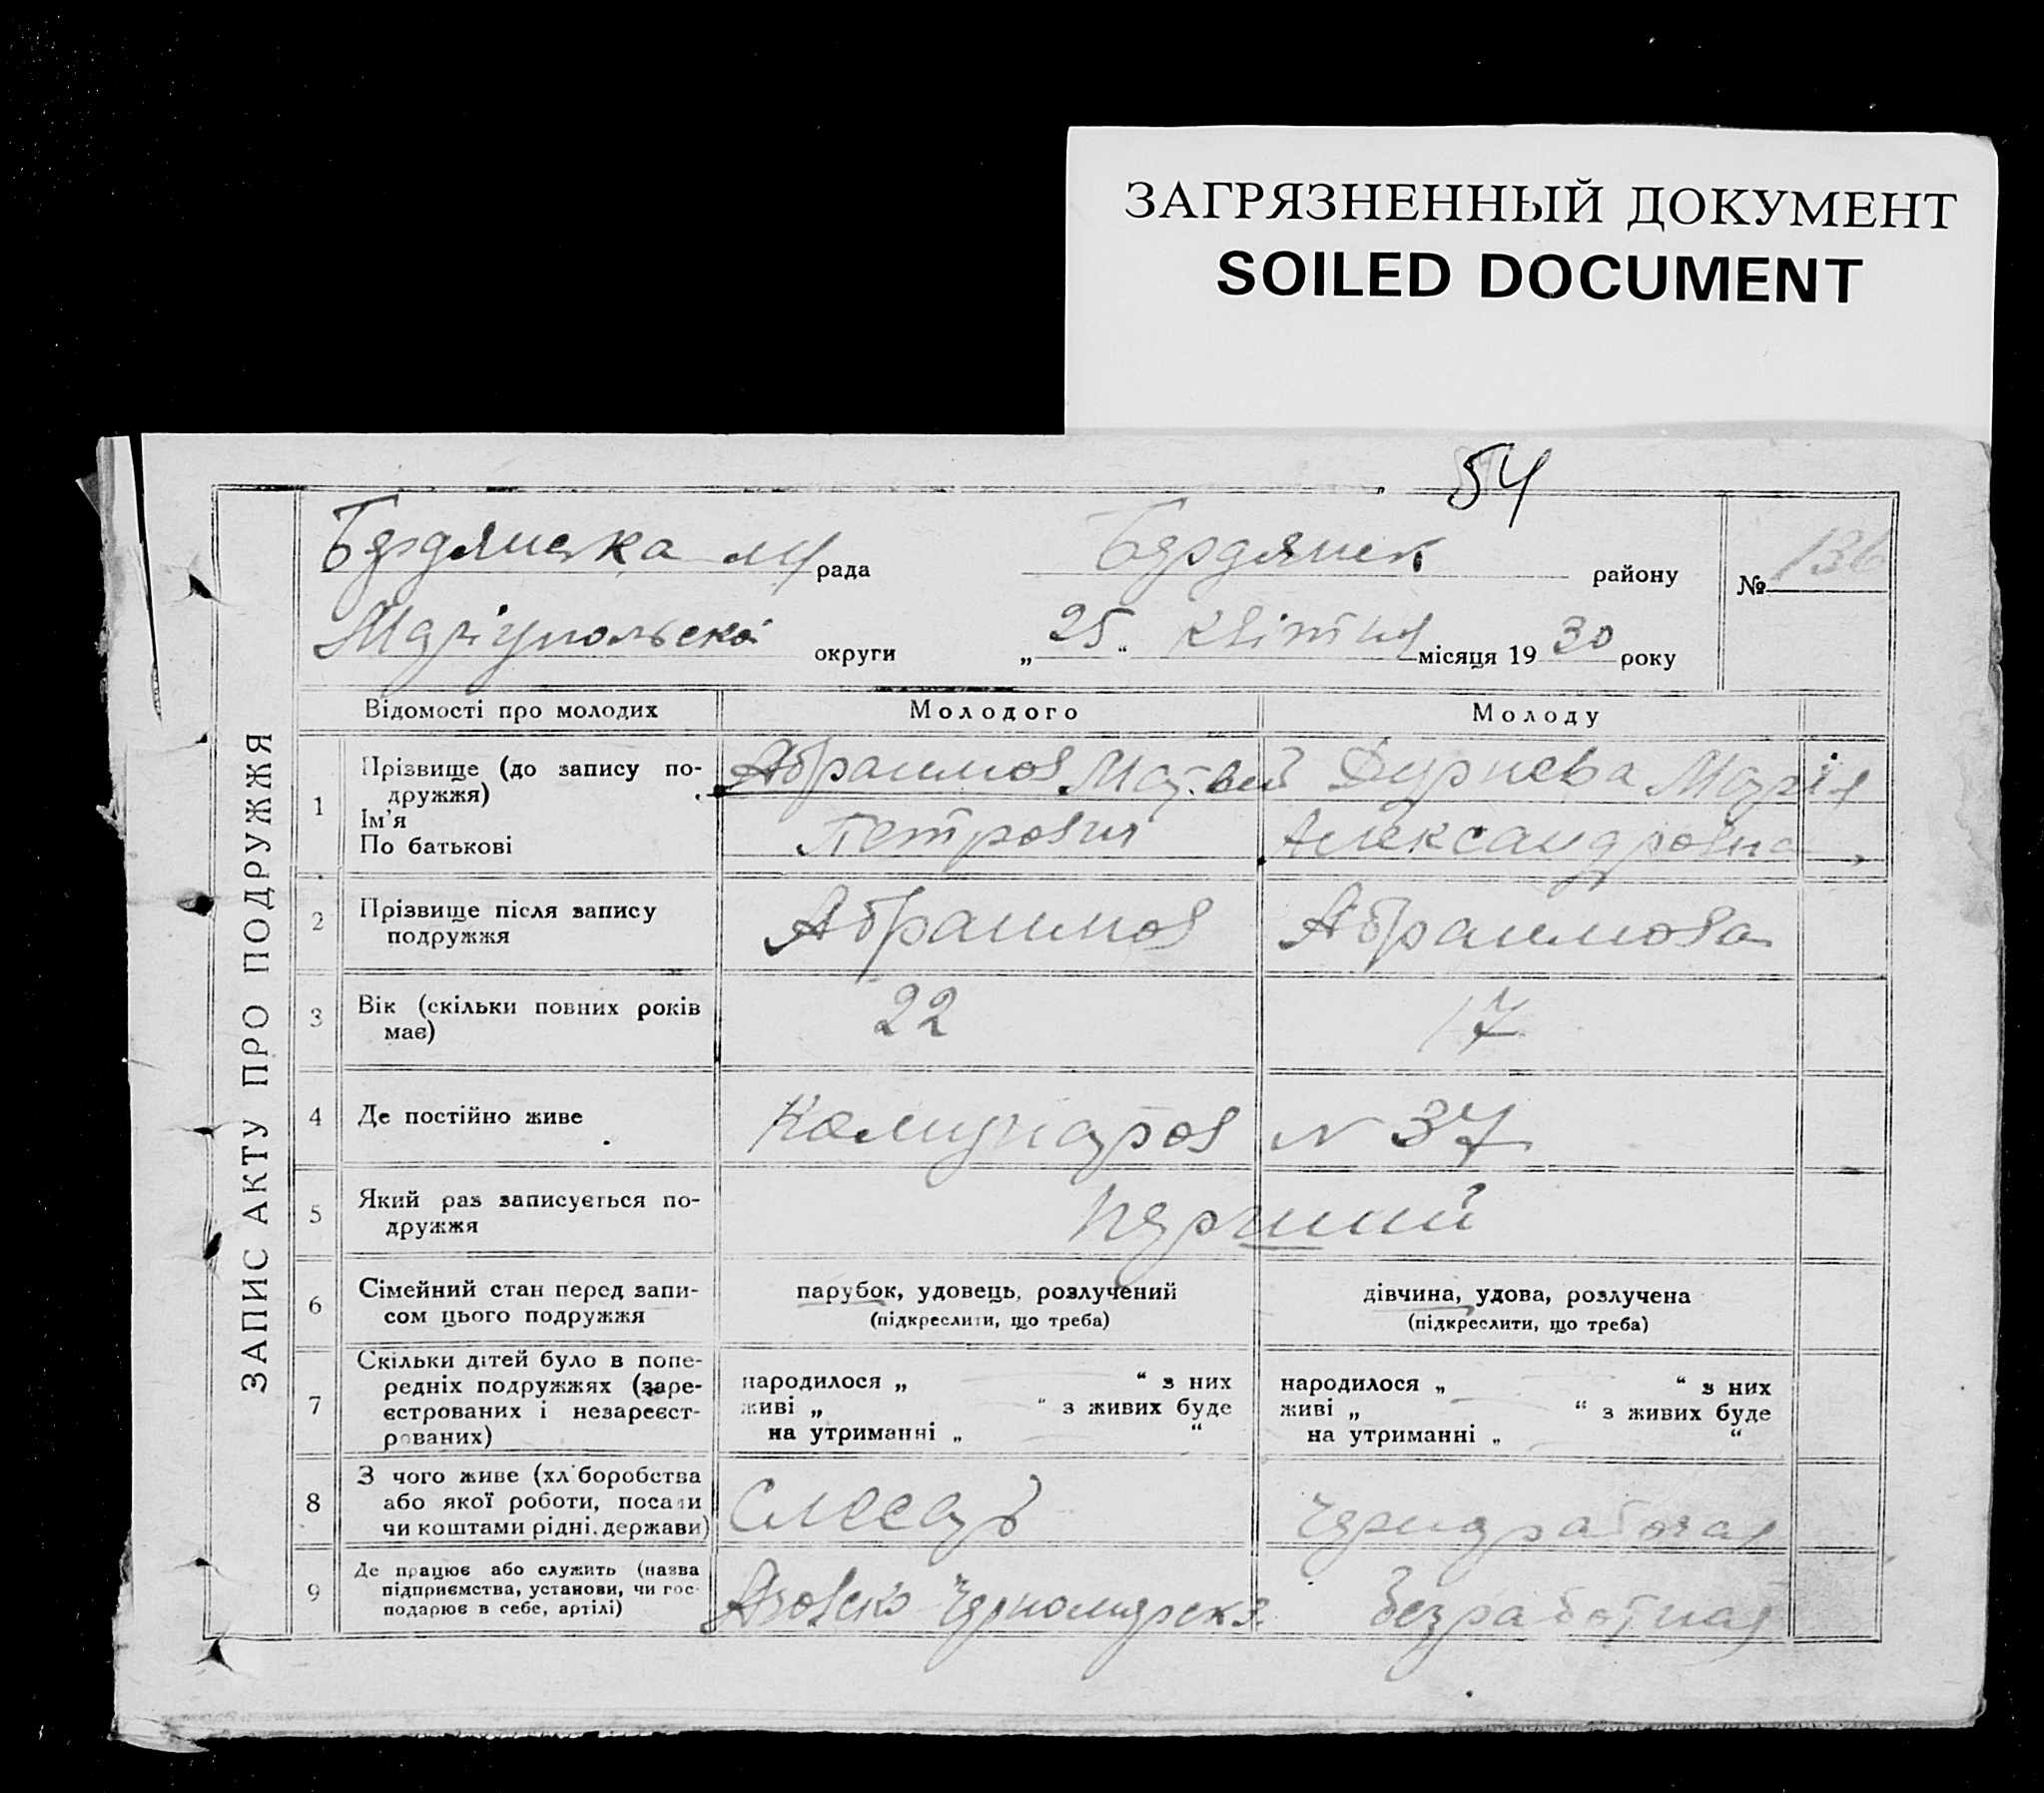 ЗАГРЯЗНЕННЫЙ ДОКУМЕНТ
SOILED DOCUMENT
54
ЗАПИС АКТУ ПРО ПОДРУЖЖЯ
Бердянська м рада Бердянськ району № 136
Маріупольскої округи „ 25 “ квітня місяця 19 30 року
Відомості про молодих Молодого Молоду
1 Прізвище (до запису по-
дружжя)
Ім'я
По батькові
Абраимов Матвей
Петрович
Дурнева Марія
Александровна
2 Прізвище після запису
подружжя
Абраимов Абраимова
3 Вік (скільки повних років
має)
22 17
4 Де постійно живе Комунаров N 37
5 Який раз записується по-
дружжя
Перший
6 Сімейний стан перед запи-
сом цього подружжя
парубок, удовець, розлучений
(підкреслити, що треба)
дівчина, удова, розлучена
(підкреслити, що треба)
7 Скільки дітей було в попе-
редніх подружжях (заре-
єстрованих і незареєст-
рованих)
народилося „ “ з них
живі „ “ з живих буде
на утриманні „ “
народилося „ “ з них
живі „ “ з живих буде
на утриманні „ “
8 З чого живе (хл боробства
або якої роботи, посади
чи коштами рідні, держави)
Слесарь Чернорабочая
9 Де працює або служить (назва
підприємства, установи, чи гос-
подарює в себе, артілі)
Азовско Черноморск з. Безработная